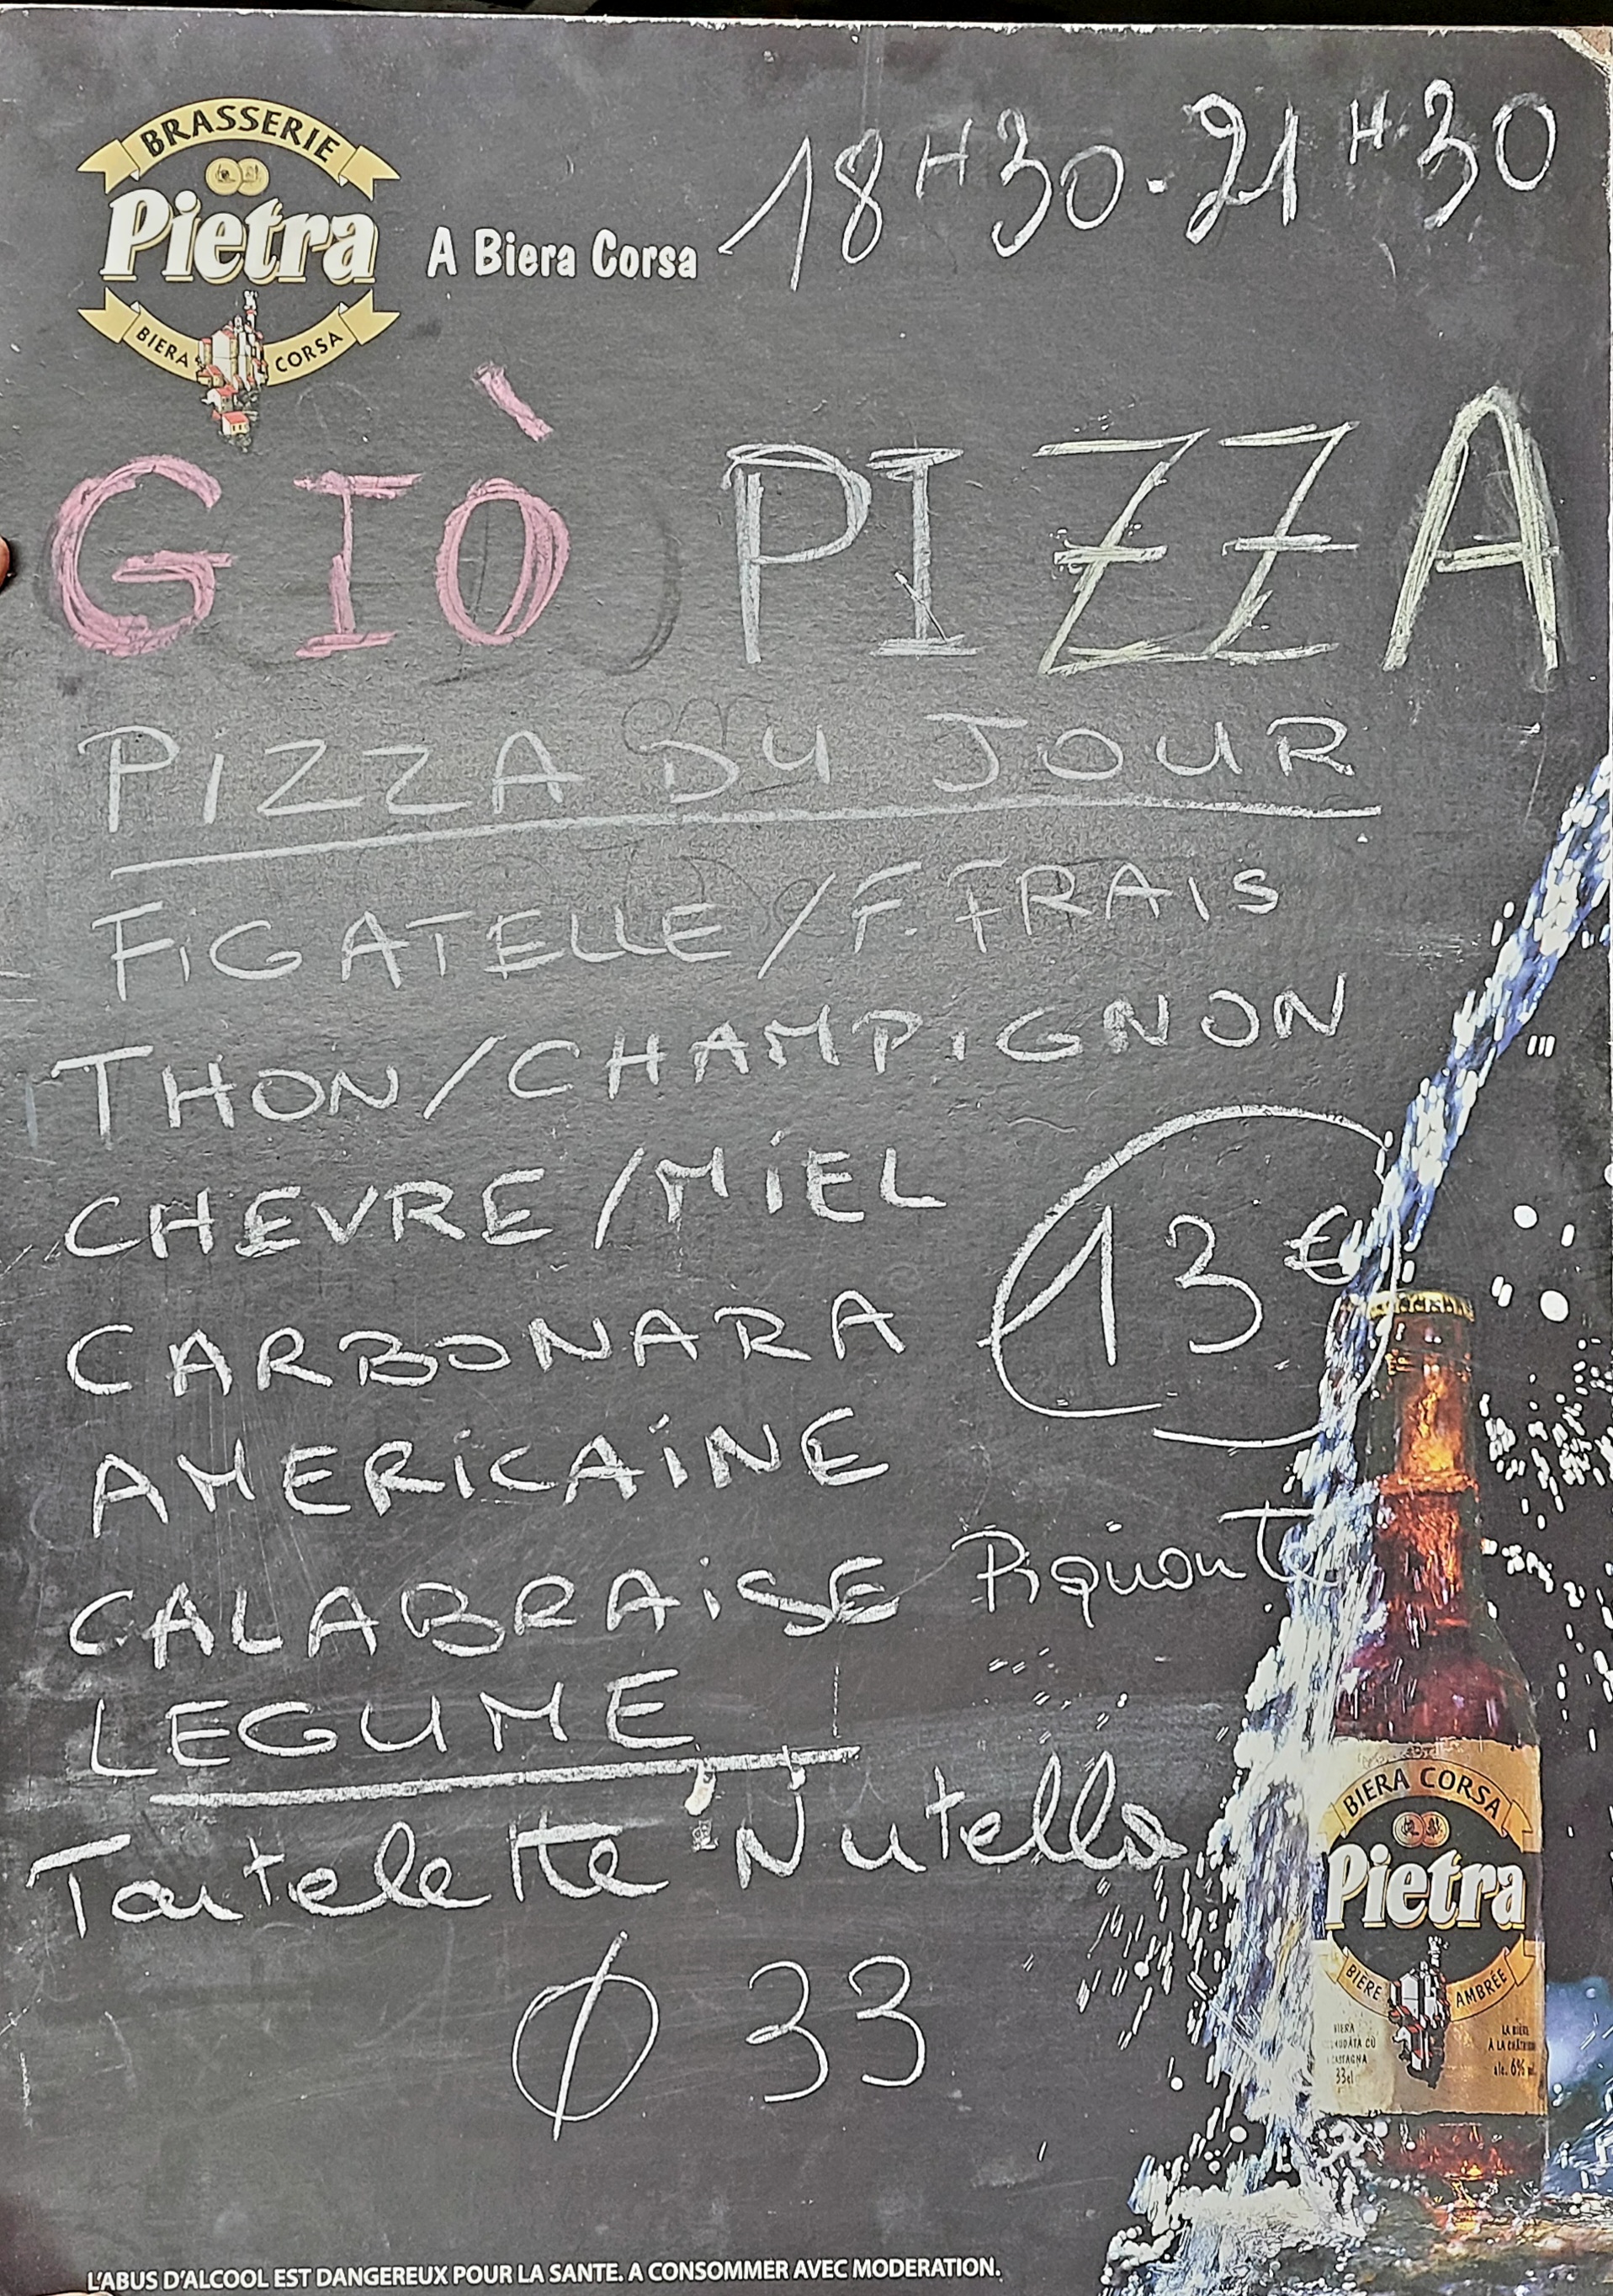 BRASSERIE
Pietra
BIERA CORSA
A Biera Corsa
18H30-21H30
GIÒ PIZZA
PIZZA DU JOUR
FIGATELLE/F.FRAIS
THON/CHAMPIGNON
CHEVRE/MIEL
13€
CARBONARA
AMERICAINE
CALABRAISE Piquante
LEGUME
Tartelette Nutella
Ø 33
BIERA CORSA
Pietra
BIERE AMBRÉE
BIERA
CASTAGNA
33cl
LA BIÈRE
À LA
alc. 6%
L'ABUS D'ALCOOL EST DANGEREUX POUR LA SANTE. A CONSOMMER AVEC MODERATION.